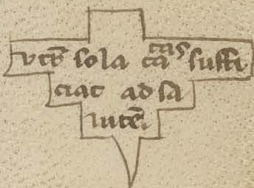 vt̄ sola cã caͣs suffi
ciat ad sa
lutē.